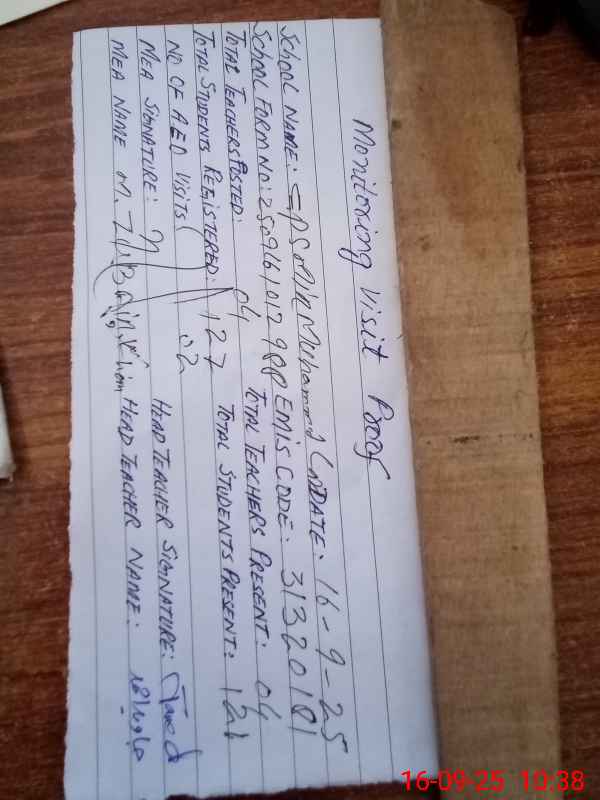 Monitoring Visit Proof
SCHOOL NAME: GPS Mir Muhammad DATE: 16-9-25
SCHOOL FORM NO: EMIS CODE: 31320181
TOTAL TEACHERS POSTED: 04 TOTAL TEACHERS PRESENT: 04
TOTAL STUDENTS REGISTERED: 127 TOTAL STUDENTS PRESENT: 121
NO OF AEO VISITS 02
MEA SIGNATURE: HEAD TEACHER SIGNATURE:
MEA NAME M. HEAD TEACHER NAME:
16-09-25 10:38